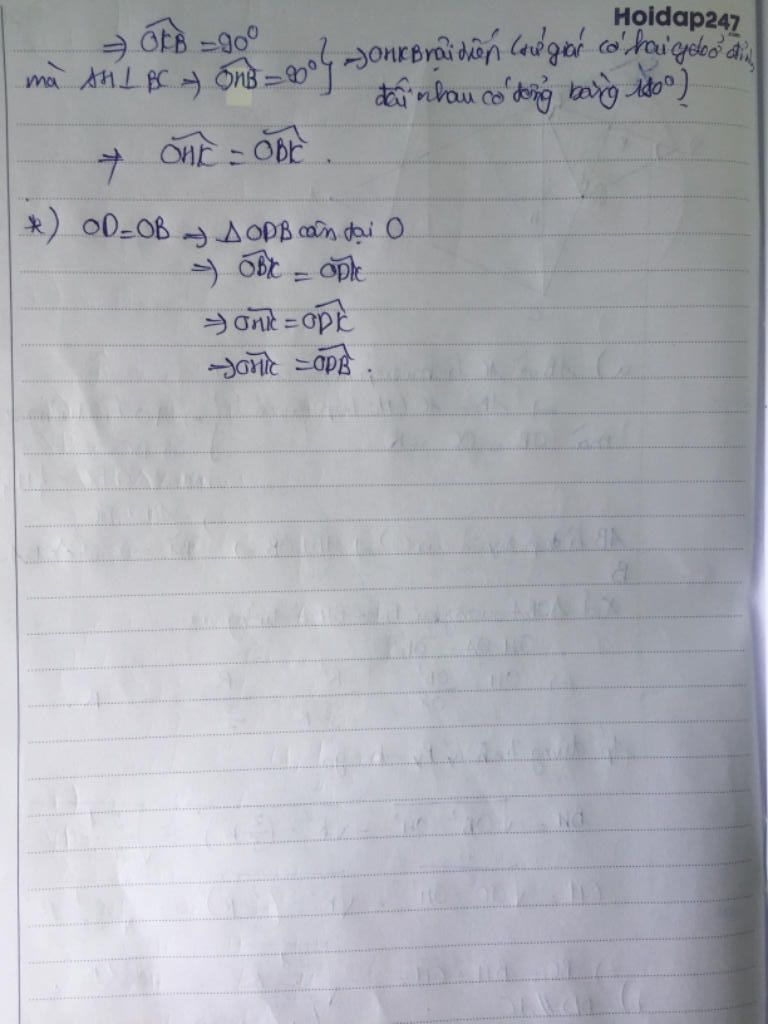 Hoidap247
⇒ OKB = 90°
mà AH ⊥ BC ⇒ OHB = 90° } ⇒ OHKB nội tiếp (tứ giác có hai góc ở đỉnh
đối nhau có tổng bằng 180°)
⇒ OHK = OBK.
*) OD = OB ⇒ Δ ODB cân tại O
⇒ OBK = ODK
⇒ OHK = ODK
⇒ OHK = ODB.